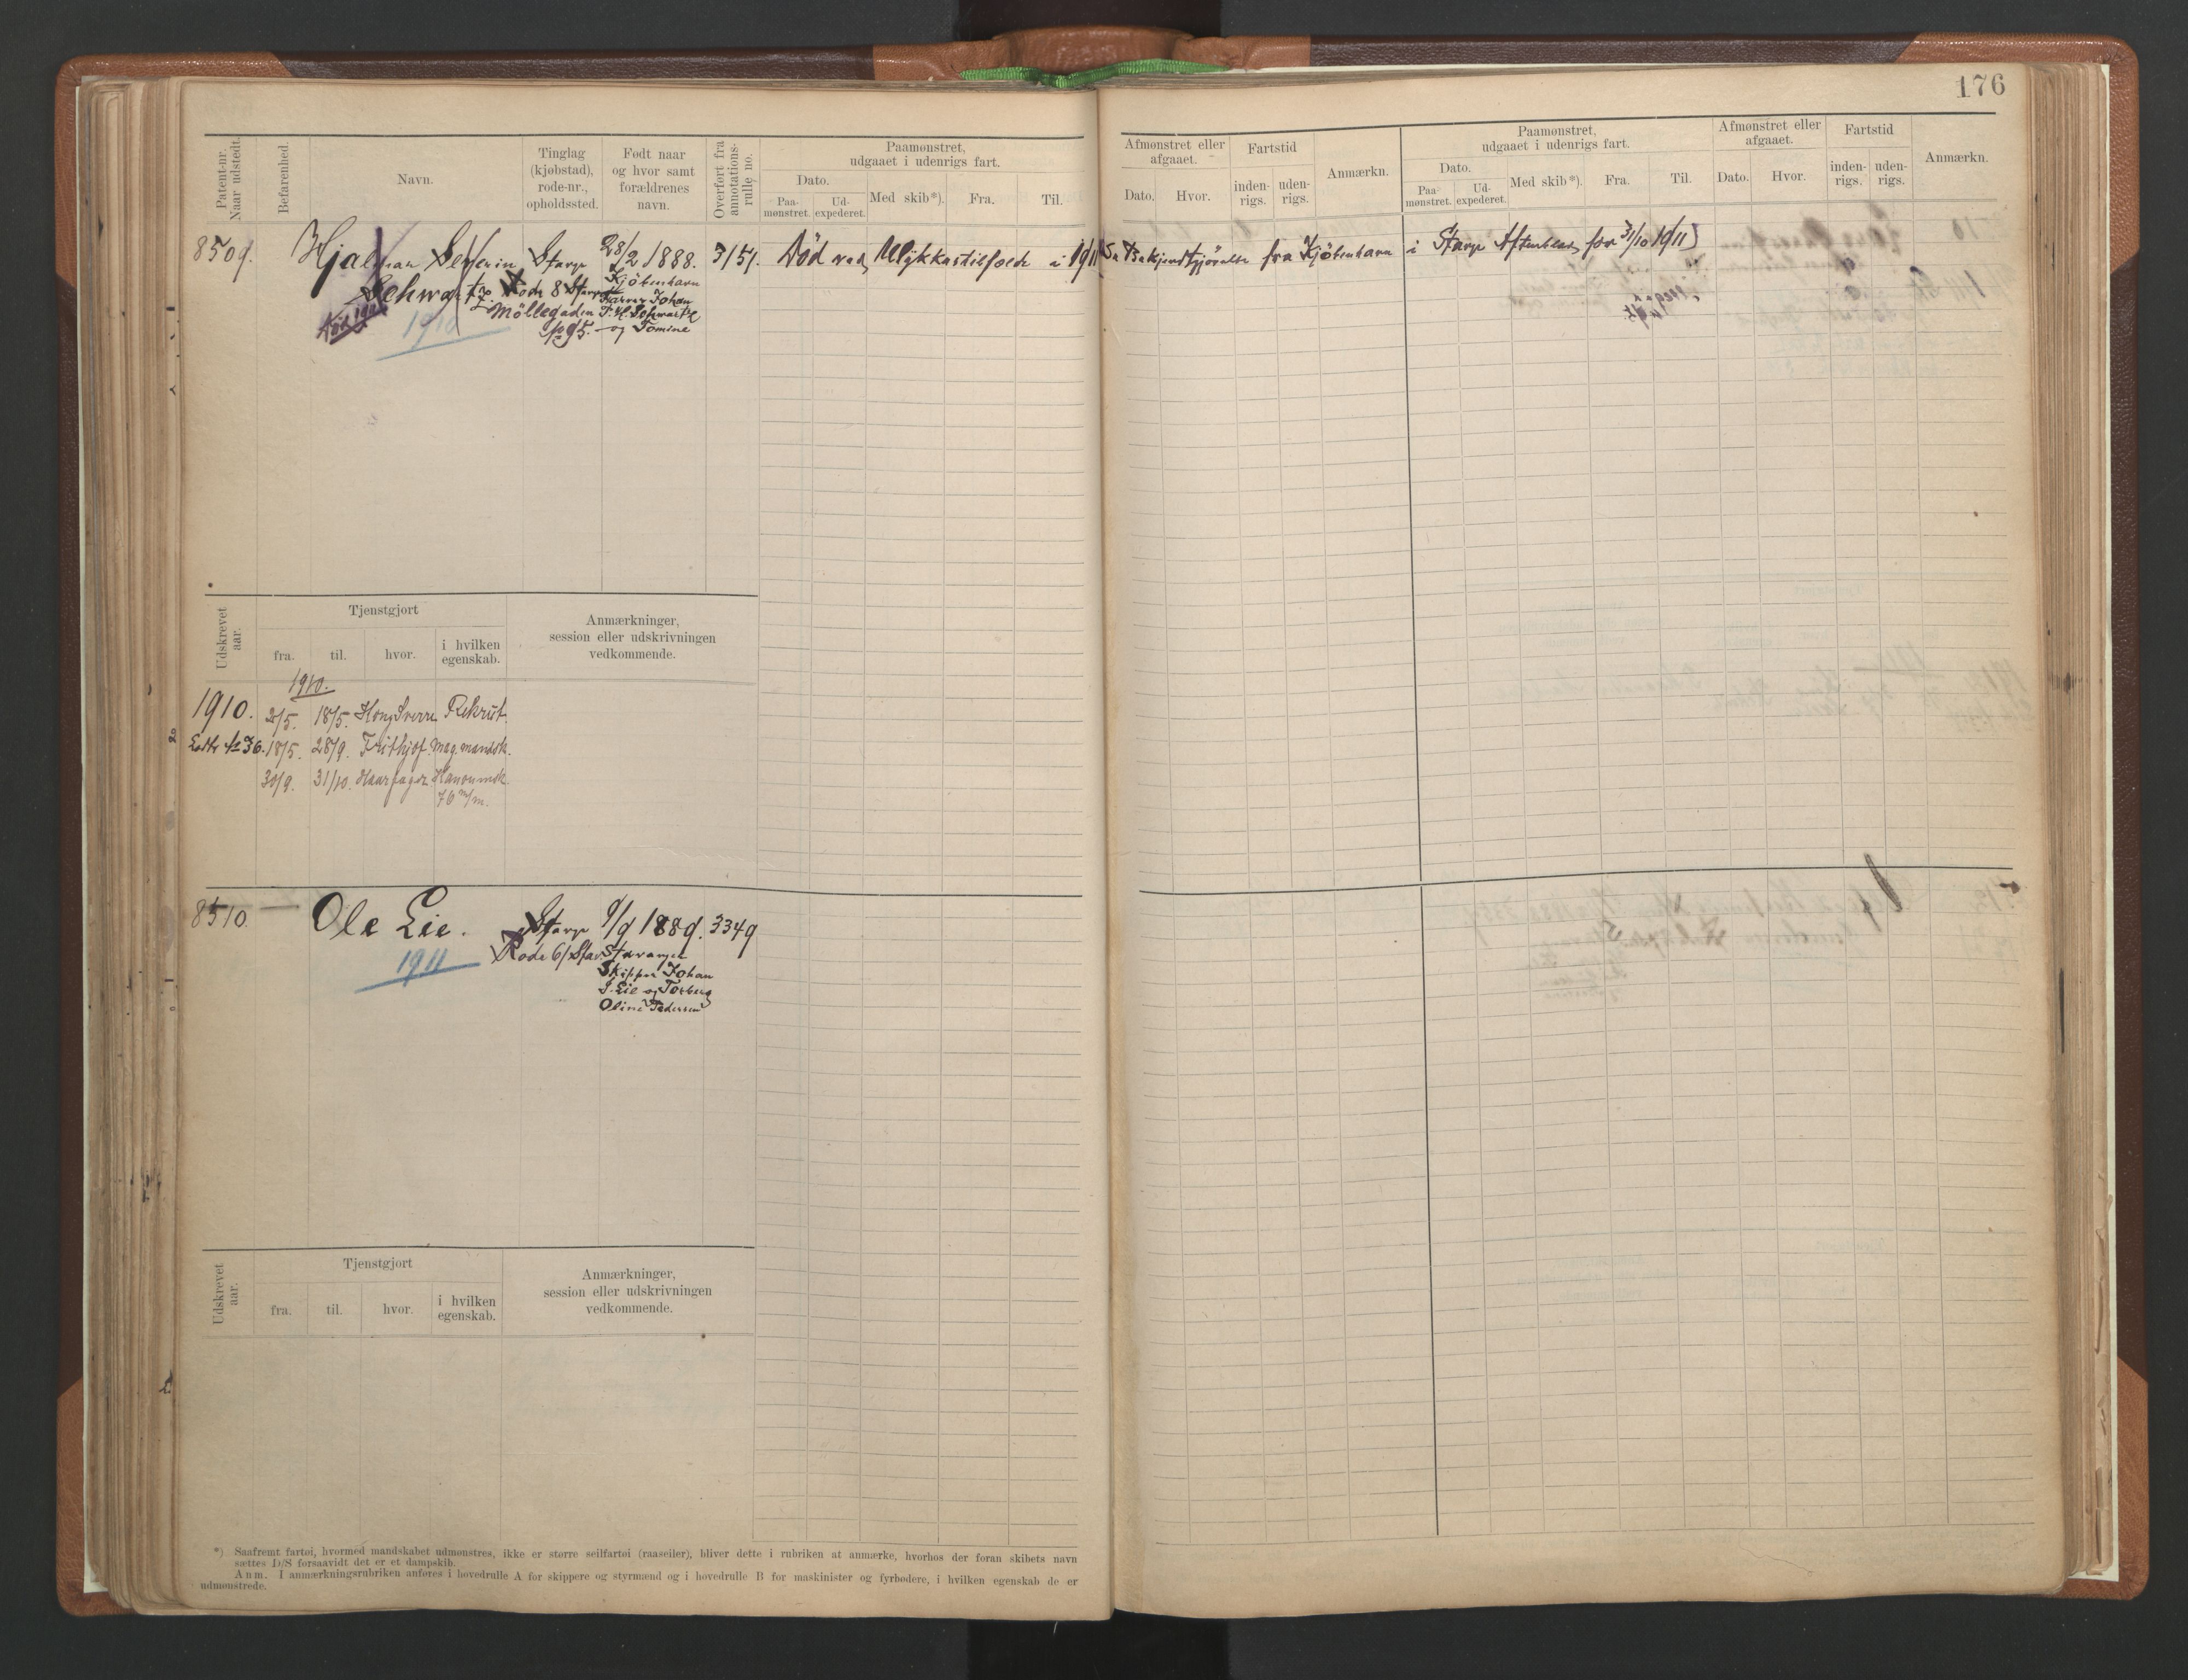 176
Patent-nr. Naar udstedt.
Befarenhed.
Navn.
Tinglag (kjøbstad), rode-nr., opholdssted.
Født naar og hvor samt forældrenes navn.
Overført fra annotations-rulle no.
Paamønstret, udgaaet i udenrigs fart.
Dato.
Paa-mønstret.
Ud-expederet.
Med skib*).
Fra.
Til.
Afmønstret eller afgaaet.
Dato.
Hvor.
Fartstid
inden-rigs.
uden-rigs.
Anmærkn.
Paamønstret, udgaaet i udenrigs fart.
Dato.
Paa-mønstret.
Ud-expederet.
Med skib*).
Fra.
Til.
Afmønstret eller afgaaet.
Dato.
Hvor.
Fartstid
inden-rigs.
uden-rigs.
Anmærkn.
8509.
Hjalmar Severin
Schwartz.
Død 1911
1910
Stavgr
Rode 8 Stavgr
Möllegaden
No 95.
28/2 1888.
Kjöbenhavn
Garver Johan
F. H. Schwartz
og Tomine
3151.
Död ved Ulykkestilfælde i 1911
Se Bekjendtgjörelse fra Kjöbenhavn i Stavgr Aftenblad for 31/10 1911)
Udskrevet aar.
Tjenstgjort
fra.
til.
hvor.
i hvilken egenskab.
Anmærkninger, session eller udskrivningen vedkommende.
1910.
1910. 2/5. 18/5. Kong Sverre Rekrut.
Lodtr № 36. 18/5. 28/9. Frithjof. Mag. mandsk.
30/9. 31/10. Haarfager. Kanonmsk.
76 m/m.
8510.
Ole Lie.
1911
Stavgr
Rode 6/Stav
9/9 1889.
Stavanger
Skipper Johan
J. Lie og Torborg
Oline Pedersen
3349
Udskrevet aar.
Tjenstgjort
fra.
til.
hvor.
i hvilken egenskab.
Anmærkninger, session eller udskrivningen vedkommende.
*) Saafremt fartøi, hvormed mandskabet udmønstres, ikke er større seilfartøi (raaseiler), bliver dette i rubriken at anmærke, hvorhos der foran skibets navn
sættes D/S forsaavidt det er et dampskib.
Anm. I anmærkningsrubriken anføres i hovedrulle A for skippere og styrmænd og i hovedrulle B for maskinister og fyrbødere, i hvilken egenskab de er
udmønstrede.